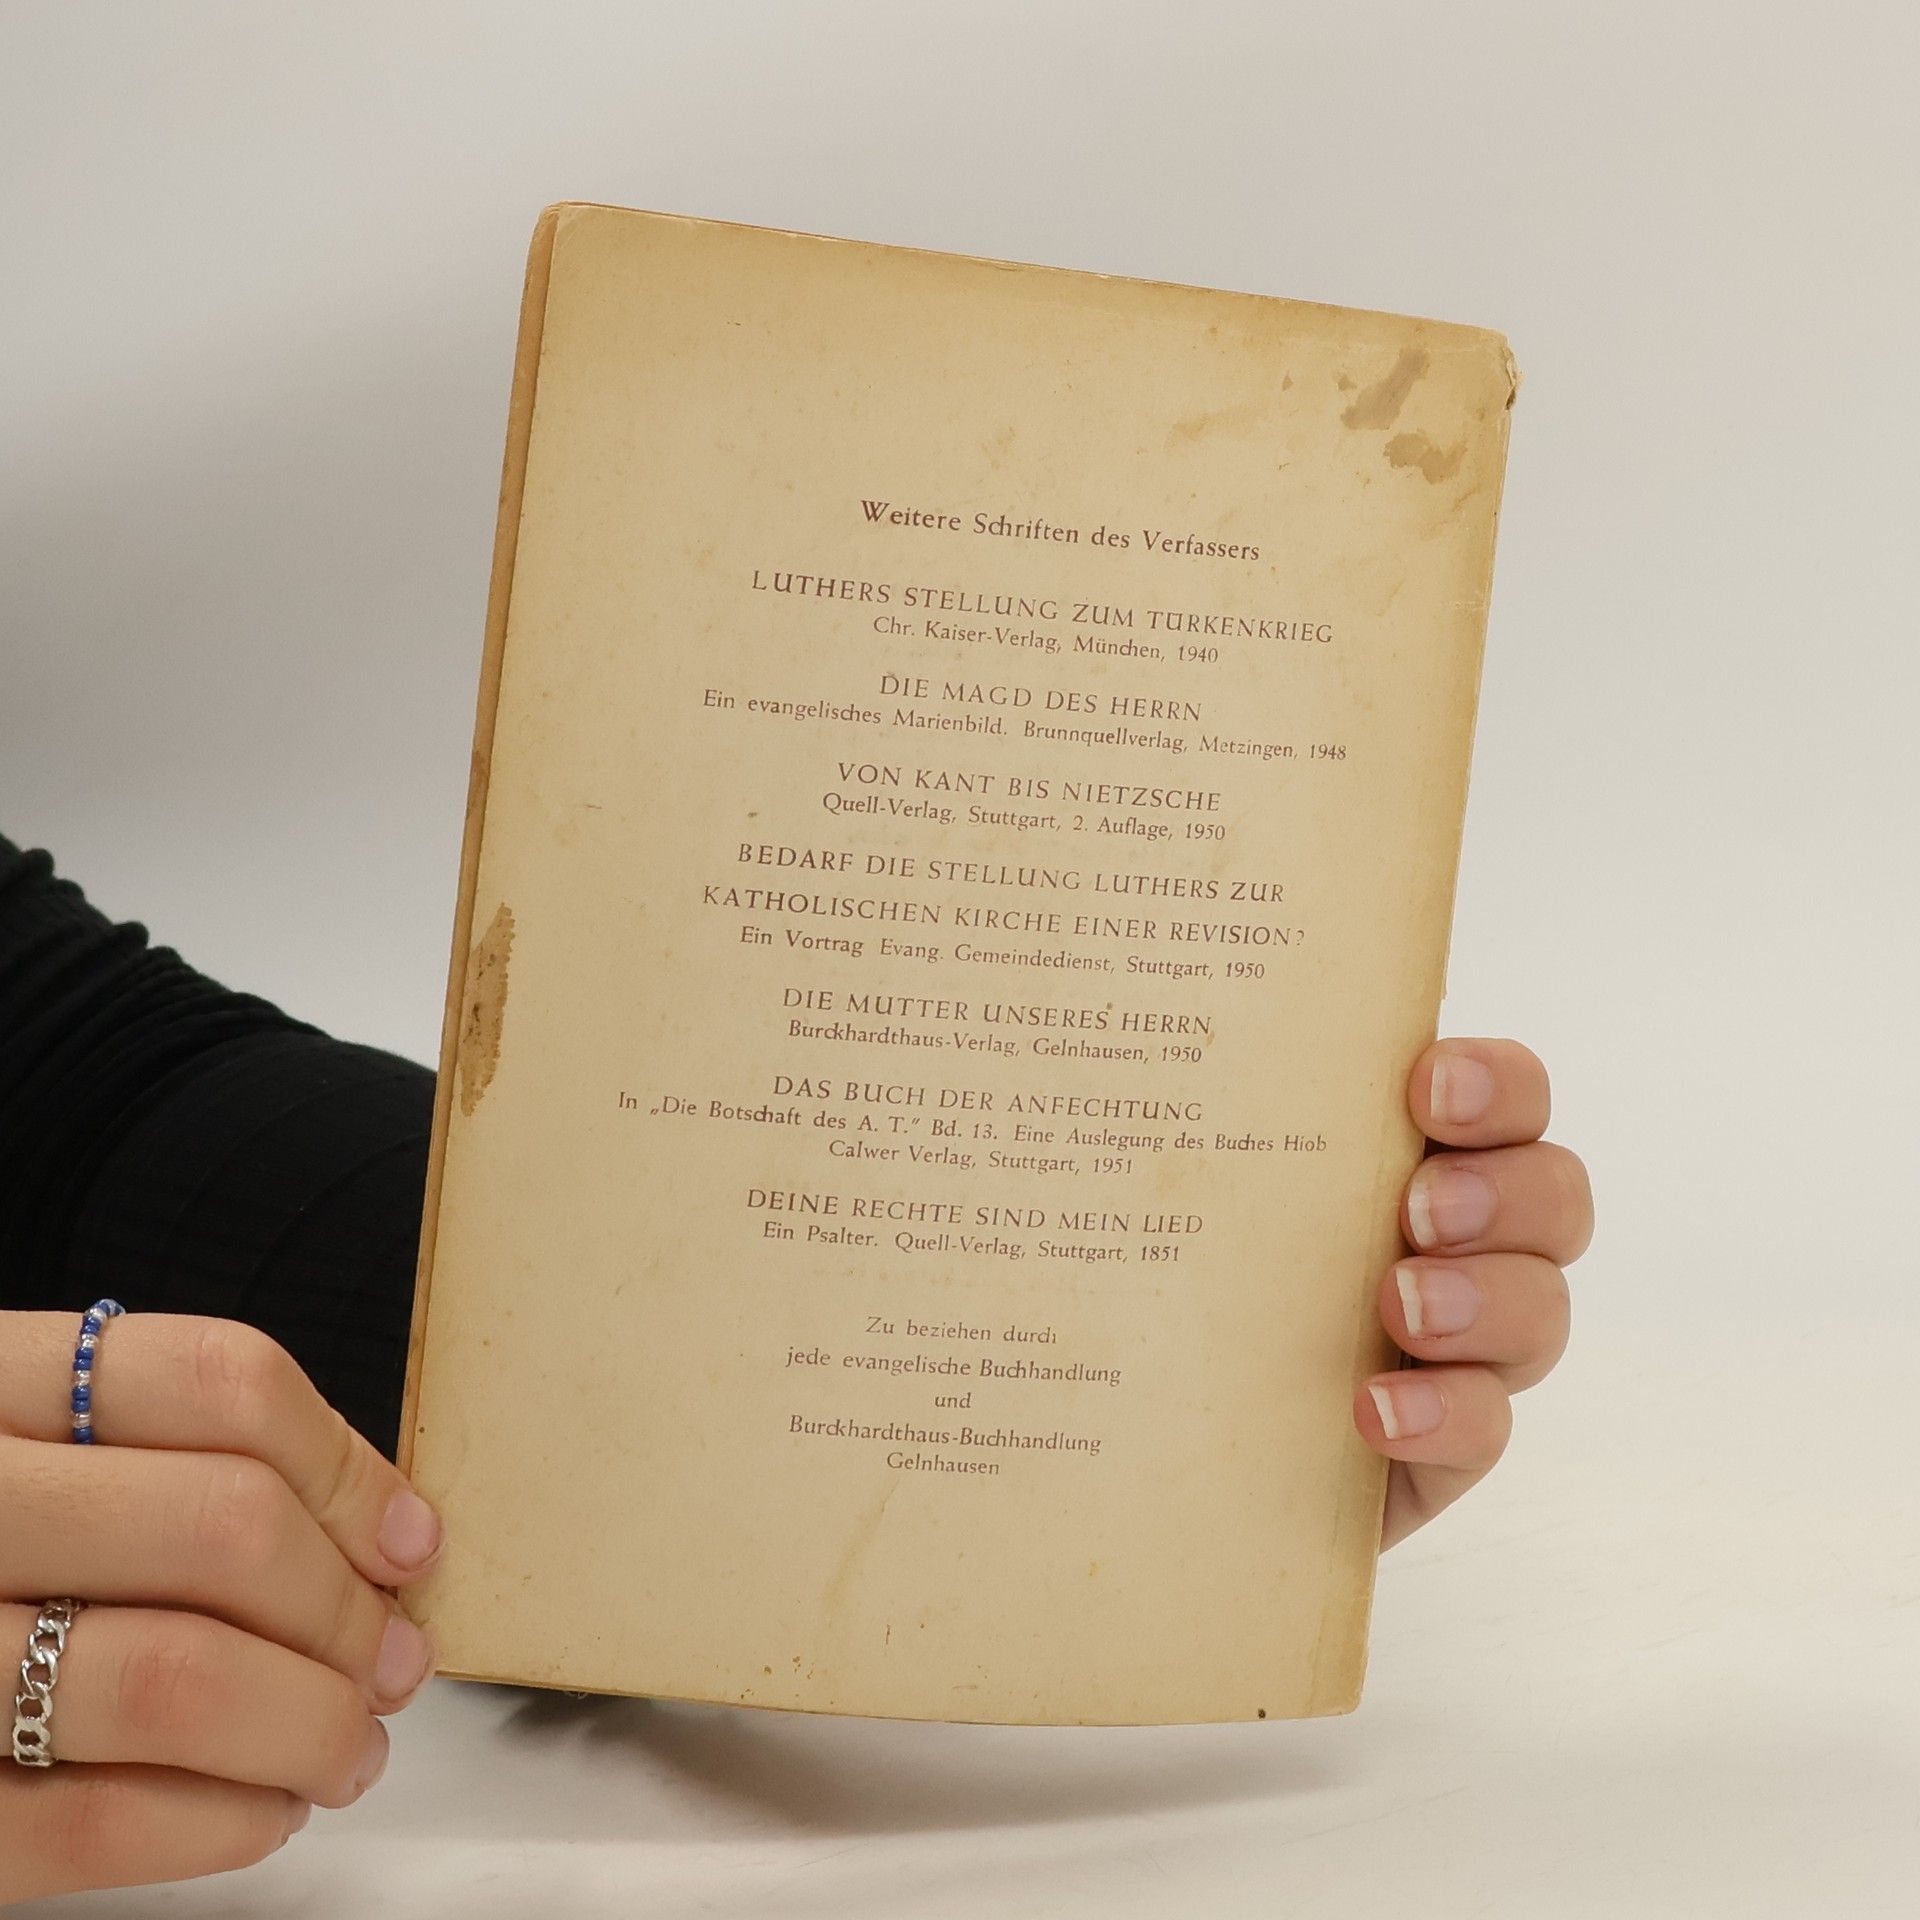 Weitere Schriften des Verfassers
LUTHERS STELLUNG ZUM TÜRKENKRIEG
Chr. Kaiser-Verlag, München, 1940
DIE MAGD DES HERRN
Ein evangelisches Marienbild. Brunnquellverlag, Metzingen, 1948
VON KANT BIS NIETZSCHE
Quell-Verlag, Stuttgart, 2. Auflage, 1950
BEDARF DIE STELLUNG LUTHERS ZUR
KATHOLISCHEN KIRCHE EINER REVISION?
Ein Vortrag Evang. Gemeindedienst, Stuttgart, 1950
DIE MUTTER UNSERES HERRN
Burckhardthaus-Verlag, Gelnhausen, 1950
DAS BUCH DER ANFECHTUNG
In „Die Botschaft des A. T.” Bd. 13. Eine Auslegung des Buches Hiob
Calwer Verlag, Stuttgart, 1951
DEINE RECHTE SIND MEIN LIED
Ein Psalter. Quell-Verlag, Stuttgart, 1851
Zu beziehen durch
jede evangelische Buchhandlung
und
Burckhardthaus-Buchhandlung
Gelnhausen